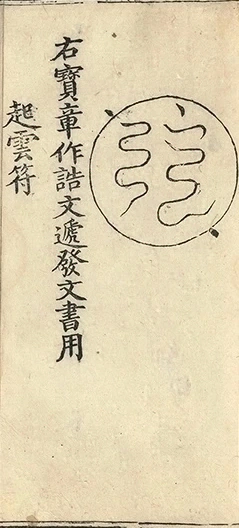 右寶章作誥文遞發文書用
起雲符